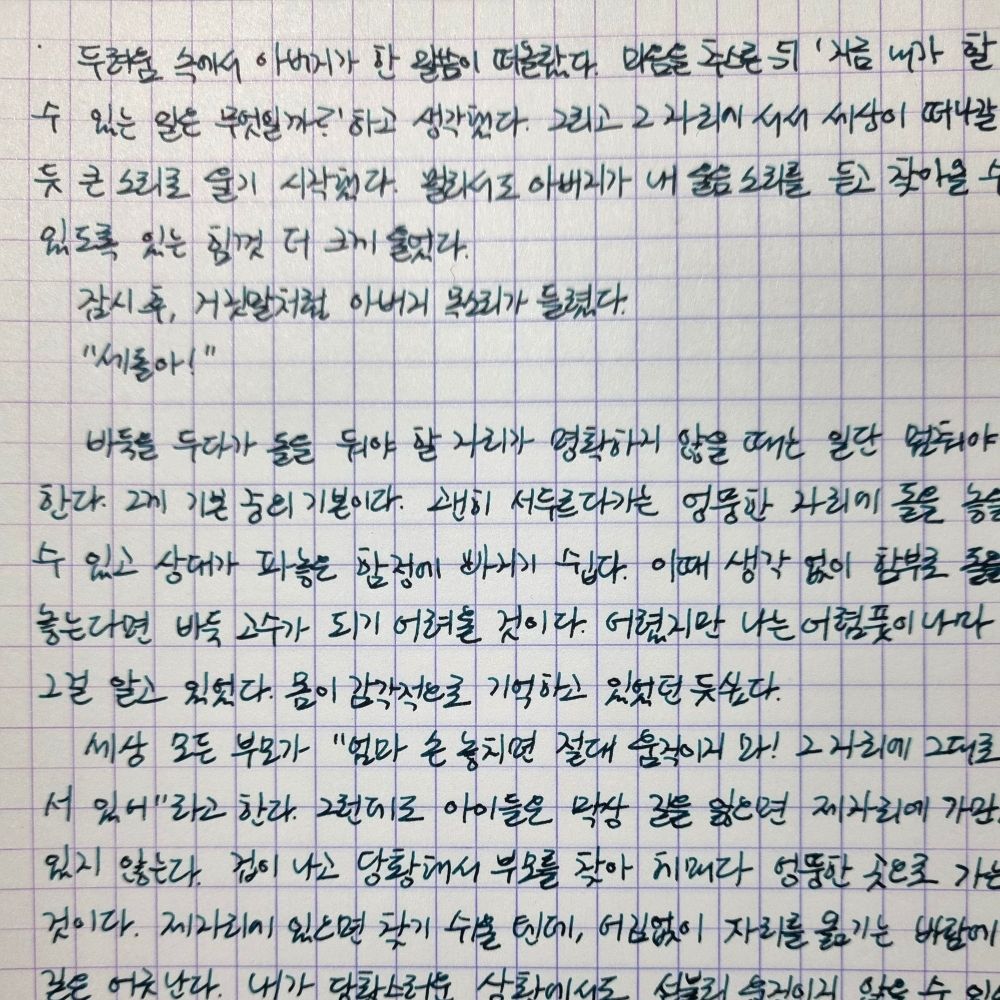 두려움 속에서 아버지가 한 말씀이 떠올랐다. 마음을 추스른 뒤 '지금 내가 할
수 있는 일은 무엇일까?' 하고 생각했다. 그리고 그 자리에 서서 세상이 떠나갈
듯 큰 소리로 울기 시작했다. 멀리서도 아버지가 내 울음소리를 듣고 찾아올 수
있도록 있는 힘껏 더 크게 울었다.
잠시 후, 거짓말처럼 아버지 목소리가 들렸다.
"세돌아!"
바둑을 두다가 돌을 둬야 할 자리가 명확하지 않을 때는 일단 멈춰야
한다. 그게 기본 중의 기본이다. 괜히 서두르다가는 엉뚱한 자리에 돌을 놓을
수 있고 상대가 파놓은 함정에 빠지기 쉽다. 이때 생각 없이 함부로 돌을
놓는다면 바둑 고수가 되기 어려울 것이다. 어렸지만 나는 어렴풋이나마
그걸 알고 있었다. 몸이 감각적으로 기억하고 있었던 듯싶다.
세상 모든 부모가 "엄마 손 놓치면 절대 움직이지 마! 그 자리에 그대로
서 있어"라고 한다. 그런데도 아이들은 막상 길을 잃으면 제자리에 가만.
있지 않는다. 겁이 나고 당황해서 부모를 찾아 헤매다 엉뚱한 곳으로 가는
것이다. 제자리에 있으면 찾기 쉬울 텐데, 어김없이 자리를 옮기는 바람에
길은 어긋난다. 내가 당황스러운 상황에서도 섣불리 움직이지 않을 수 있